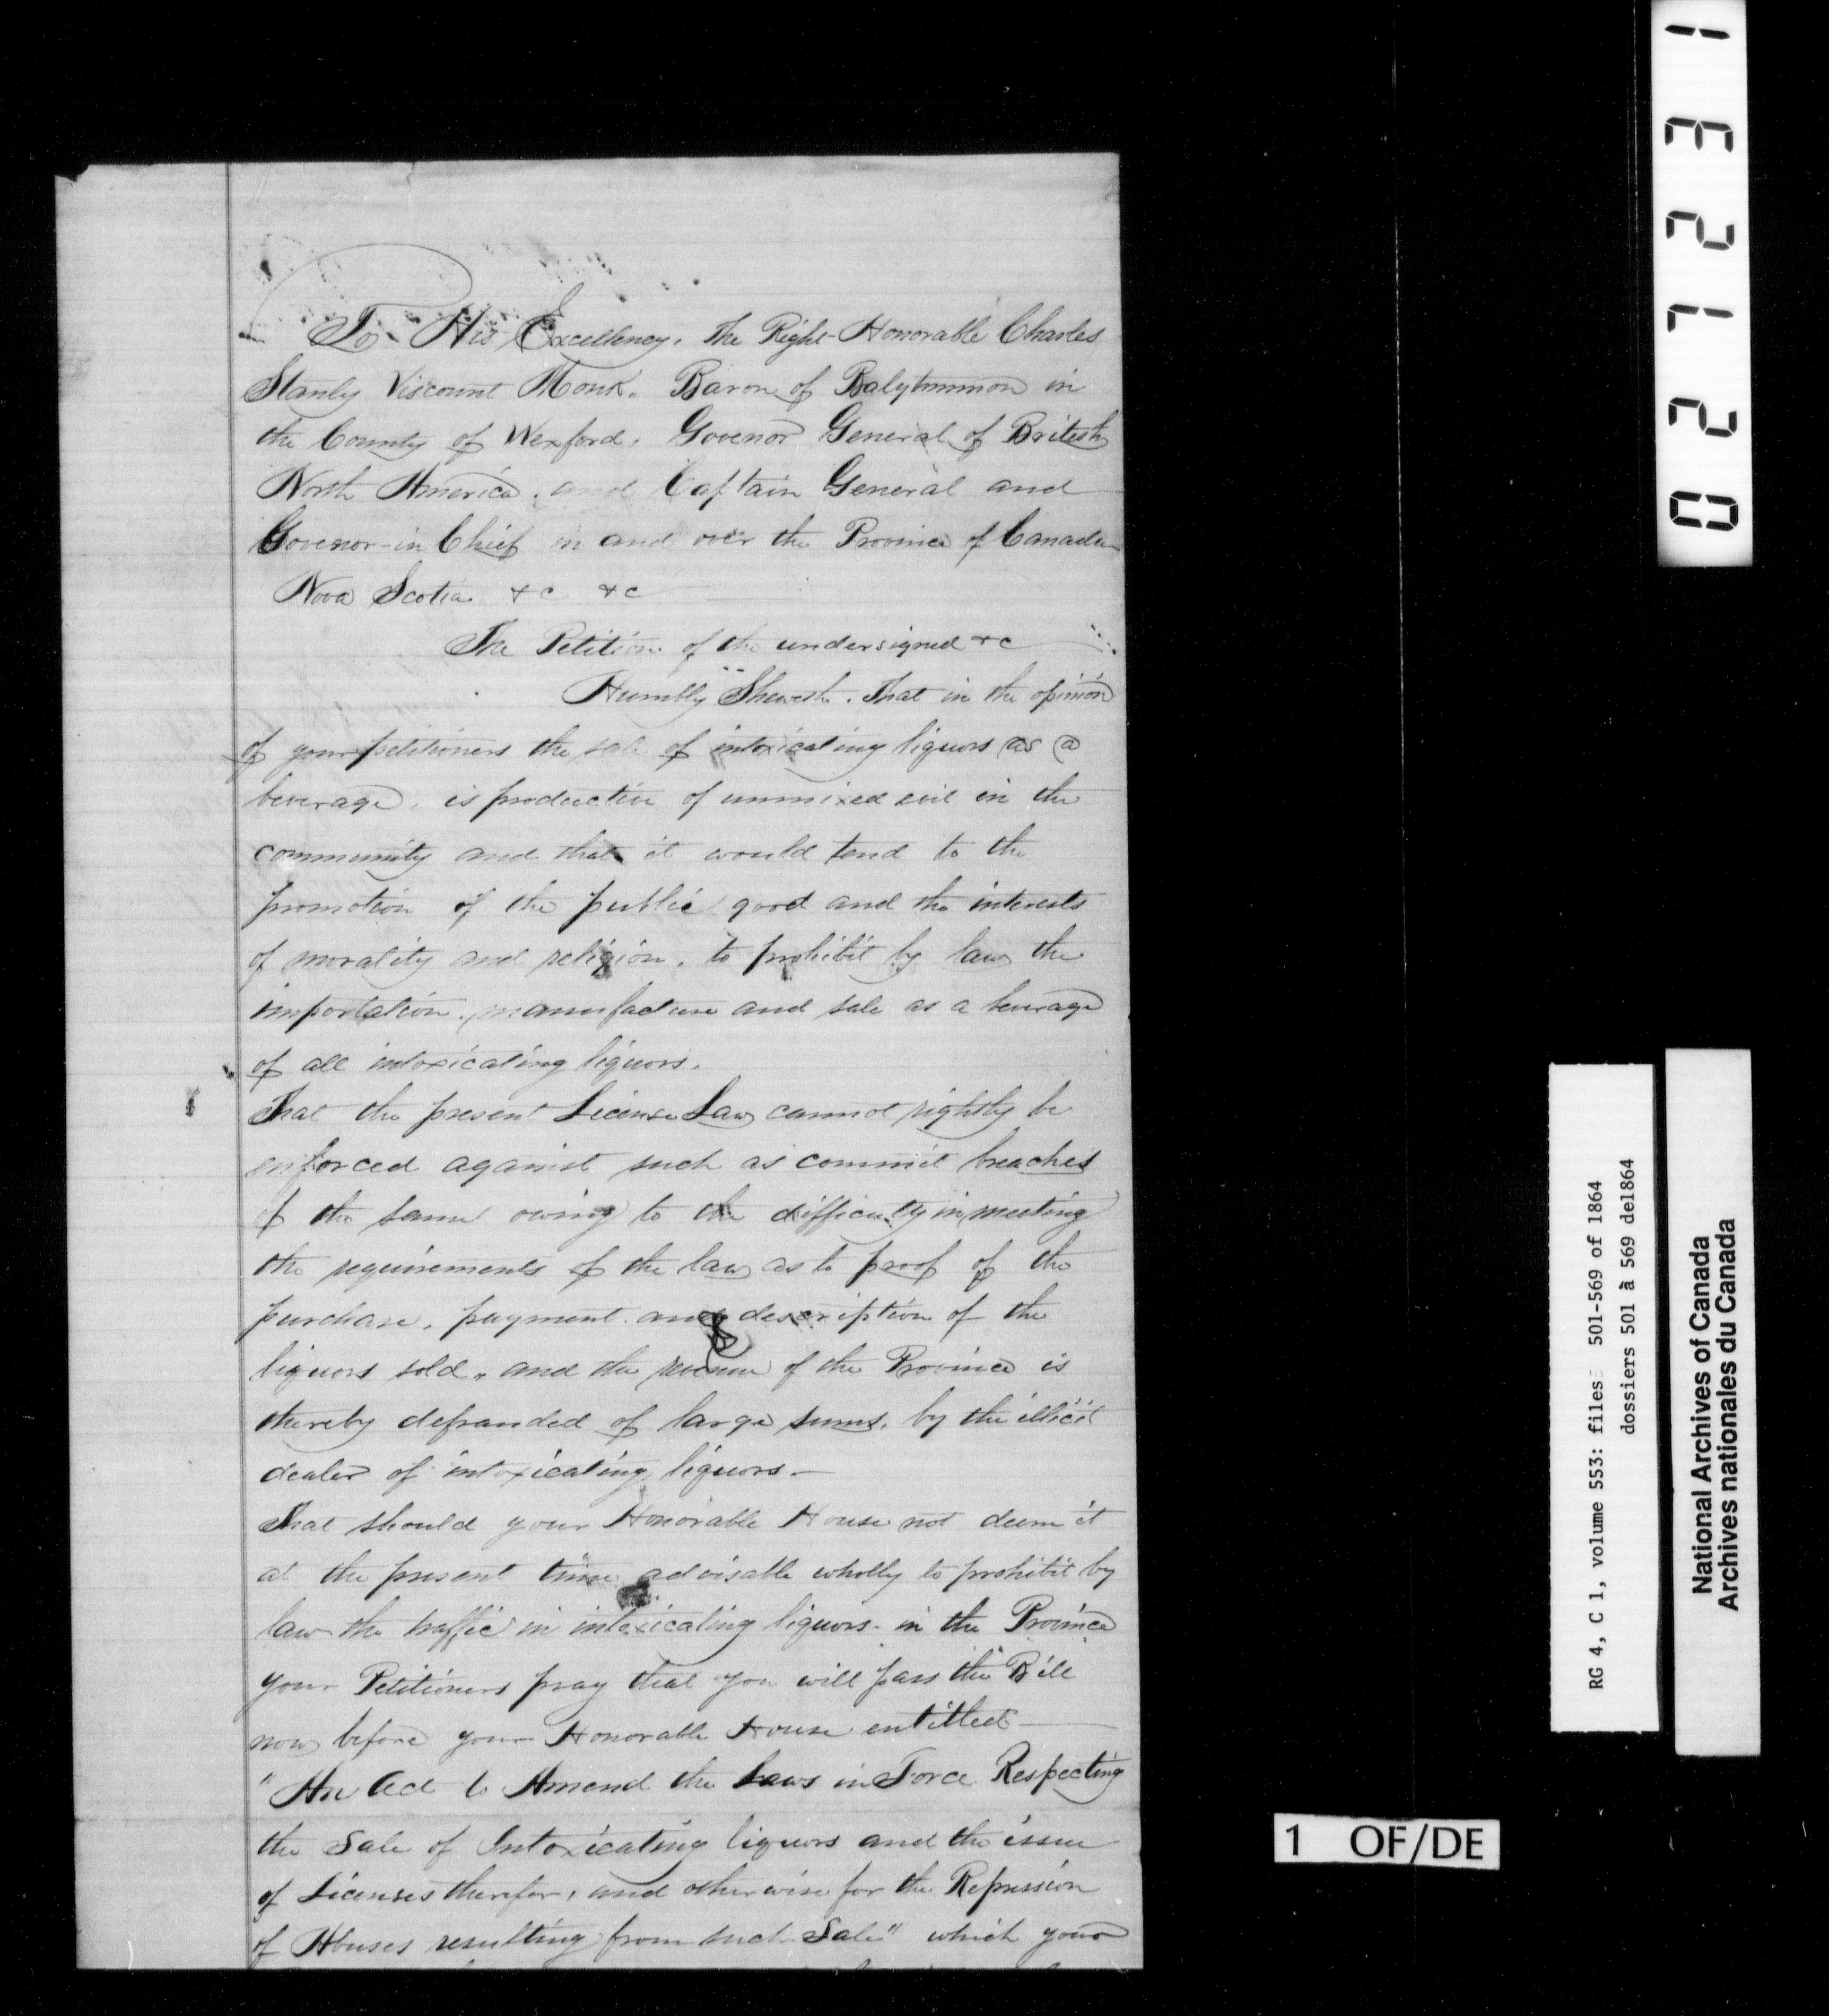 To His Excellency. The Right Honorable Charles
Stanly Viscount Monk. Baron of Balytrammon in
the County of Wexford. Govenor General of British
North America. and Captain General and
Govenor-in Chief in and over the Province of Canada
Nova Scotia &c &c
The Petition of the undersigned &c
Humbly Sheweth. That in the opinion
of your petitioners the sale of intoxicating liquors as a
beverage, is productive of unmixed evil in the
community and that it would tend to the
promotion of the public good and the interests
of morality and religion, to prohibit by law the
importation, manufacture and sale as a beverage
of all intoxicating liquors.
That the present License Law cannot rightly be
enforced against such as commit breaches
of the same owing to the difficulty in meeting
the requirements of the law as to proof of the
purchase, payment and description of the
liquors sold, and the revenue of the Province is
thereby defrauded of large sums, by the illicit
dealer of intoxicating liquors—
That should your Honorable House not deem it
at the present time advisable wholly to prohibit by
law the traffic in intoxicating liquors in the Province
your Petitioners pray that you will pass the Bill
now before your Honorable House entitled
"An Act to Amend the Laws in Force Respecting
the Sale of Intoxicating liquors and the issue
of Licenses therefor, and otherwise for the Repression
of Abuses resulting from such Sale" which your
02723 1
RG 4, C 1, volume 553: files 501-569 of 1864
dossiers 501 à 569 de1864
National Archives of Canada
Archives nationales du Canada
1 OF/DE